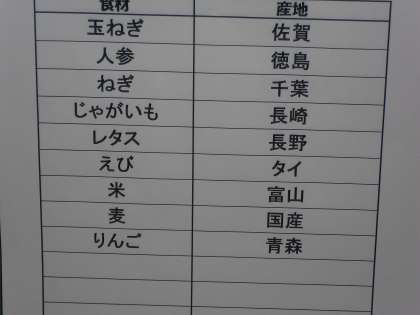 食材 産地
玉ねぎ 佐賀
人参 徳島
ねぎ 千葉
じゃがいも 長崎
レタス 長野
えび タイ
米 富山
麦 国産
りんご 青森